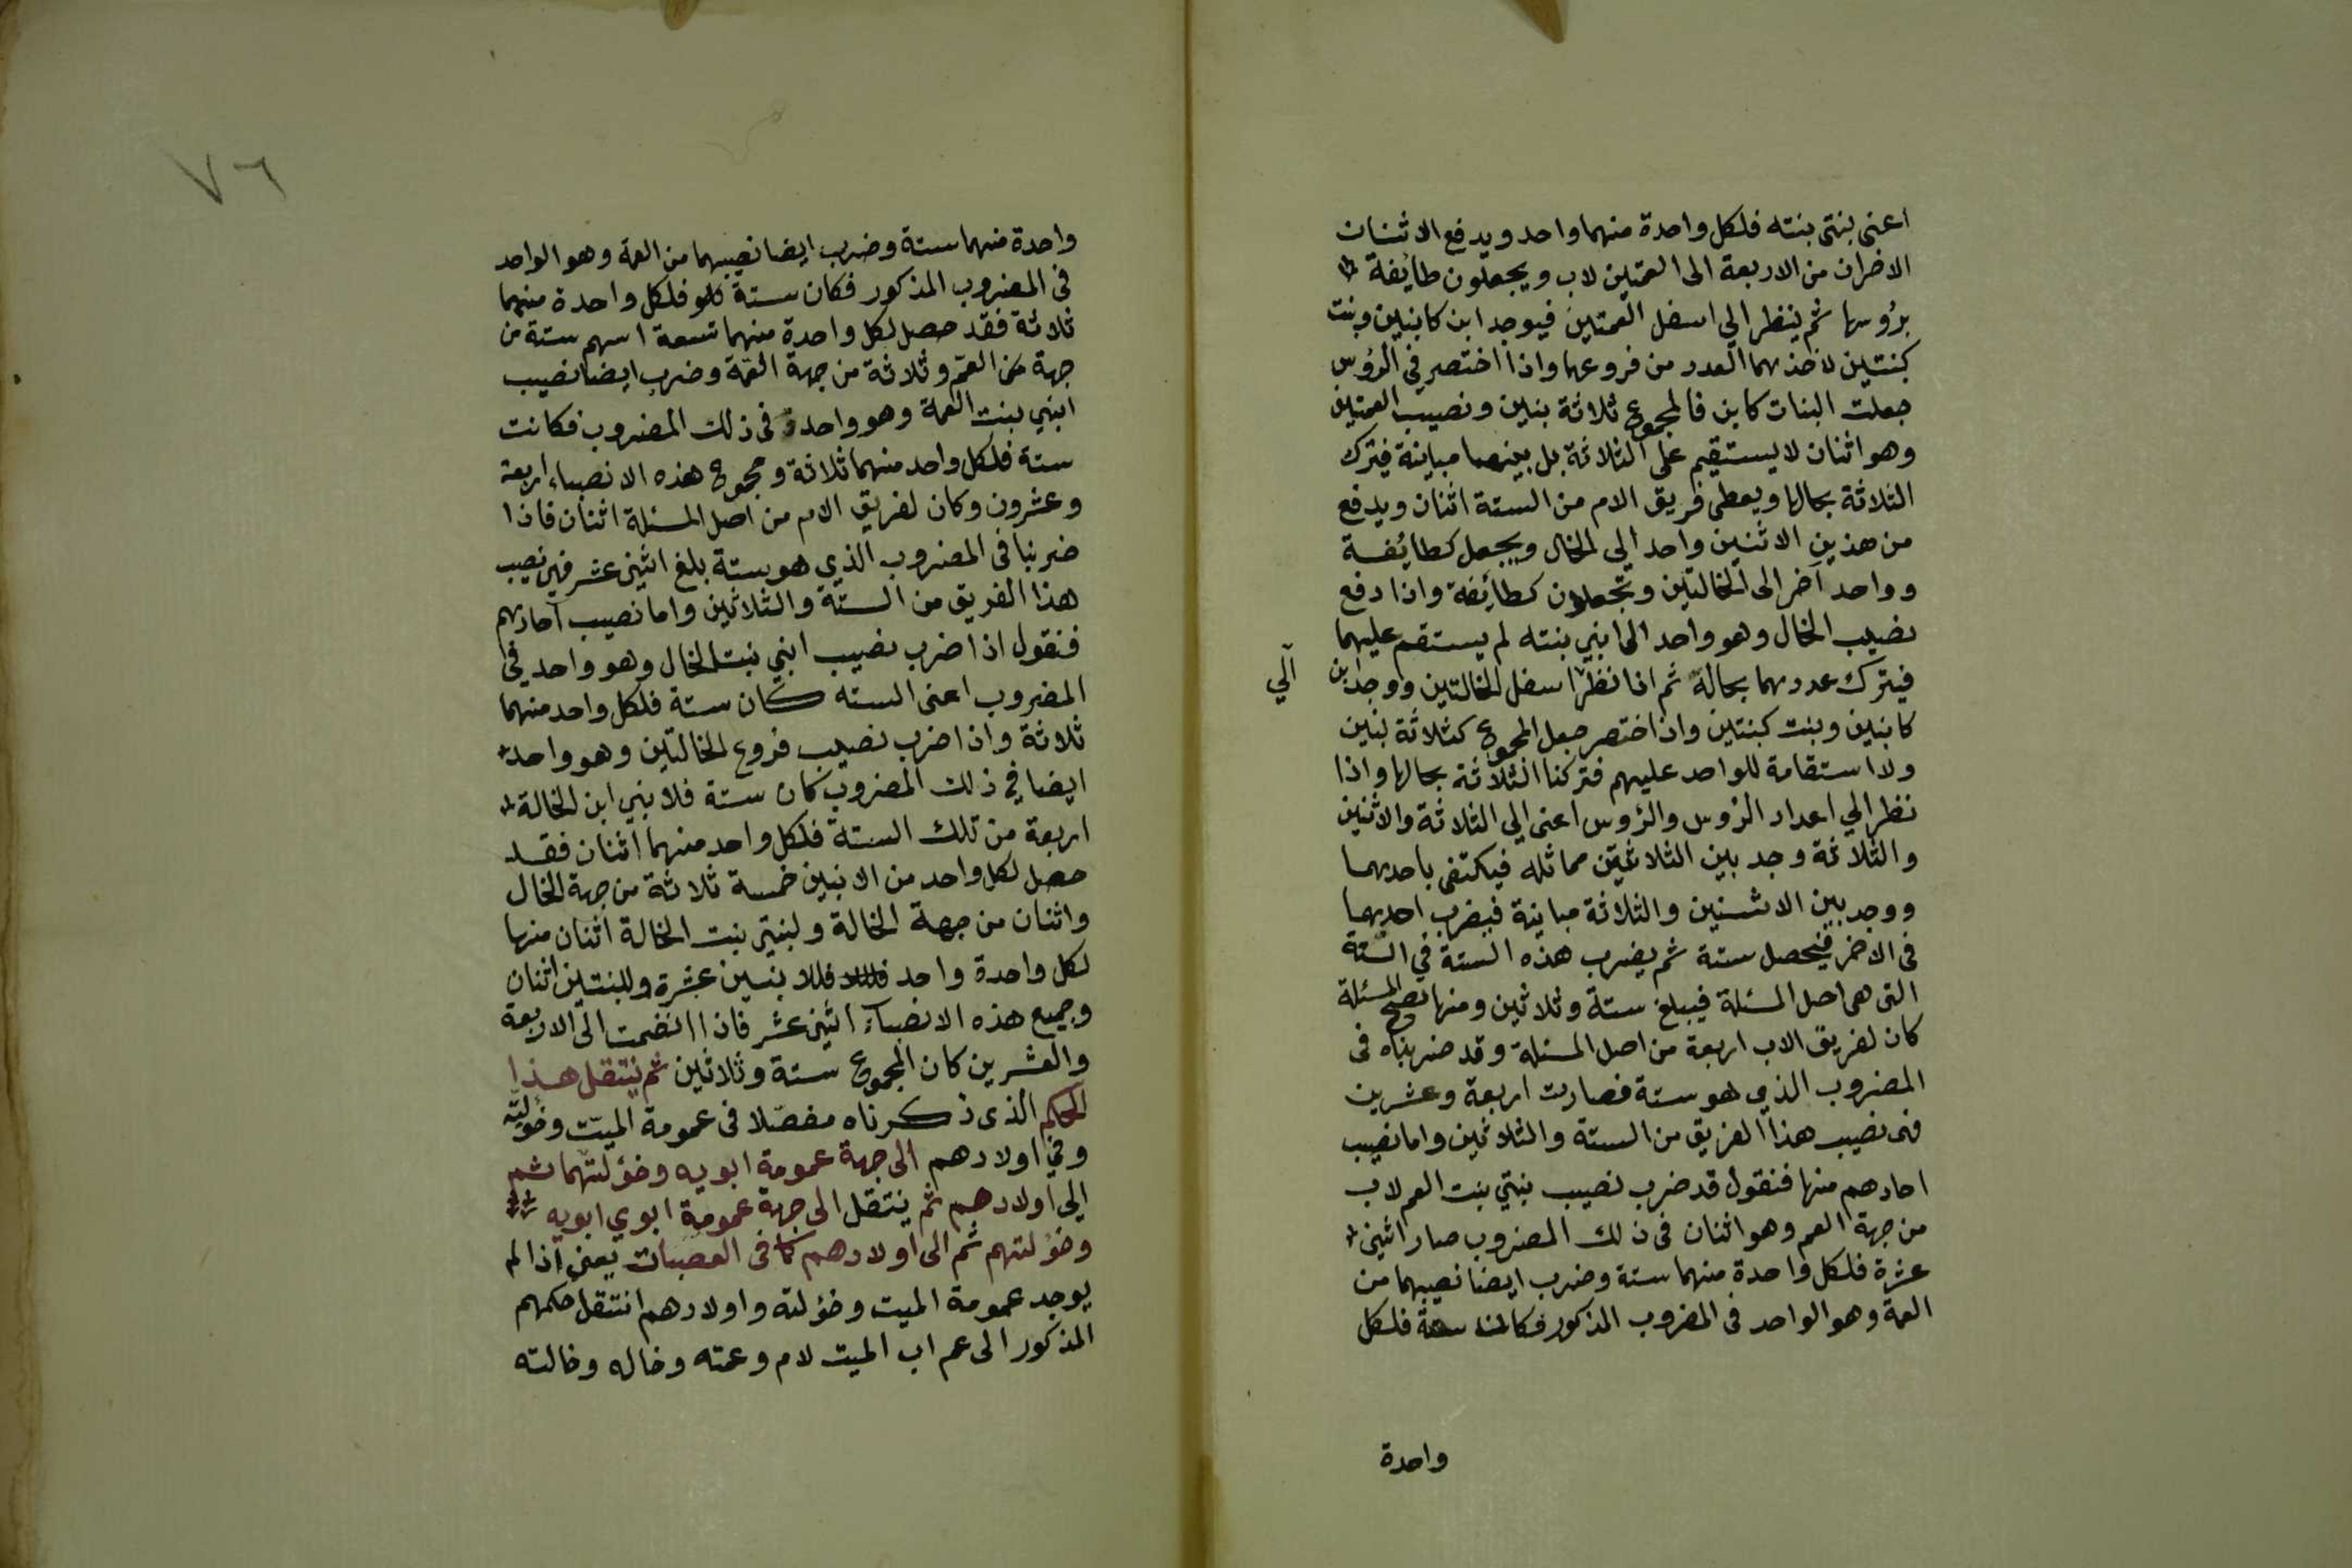 اعنى بنتى بنته فلكل واحدة منهما واحد ويدفع الاثنان
الاخران من الاربعة الى العمتين لاب ويجعلون طايفة
برؤسها ثم ينظر الي اسفل العمتين فيوجد ابن كابنين وبنت
كبنتين لاخذهما العدد من فروعهما واذا اختصر في الرؤس
جعلت البنات كابن فالمجموع ثلاثة بنين ونصيب العمتين
وهو اثنان لا يستقيم على الثلاثة بل بينهما مباينة فيترك
الثلاثة بحالها ويعطى فريق الام من الستة اثنان ويدفع
من هذين الاثنين واحد الي الخال ويجعل كطائفة
وواحد آخر الى الخالتين وتجعلان كطائفة واذا دفع
نصيب الخال وهو واحد الى ابني بنته لم يستقم عليهما
فيترك عددهما بحاله ثم اذا نظر اسفل الخالتين ووجد ابن
الي
كابنين وبنت كبنتين واذا اختصر جعل المجموع كثلاثة بنين
ولا استقامة للواحد عليهم فتركنا الثلاثة بحالها واذا
نظر الي اعداد الرؤس والرؤس اعنى الي الثلاثة والاثنين
والثلاثة وجد بين الثلاثتين مماثله فيكتفى باحديهما
ووجد بين الاثنين والثلاثة مباينة فيضرب احديهما
فى الاخر فيحصل ستة ثم يضرب هذه الستة في الستة
التى هى اصل المسئلة فيبلغ ستة وثلاثين ومنها تصح المسئلة
كان لفريق الاب اربعة من اصل المسئلة وقد ضربناه فى
المضروب الذي هو ستة فصارت اربعة وعشرين
فهى نصيب هذا الفريق من الستة والثلاثين واما نصيب
احادهم منها فنقول قد ضرب نصيب بنتي بنت العم لاب
من جهة العم وهو اثنان فى ذلك المضروب صار اثنى
عشرة فلكل واحدة منهما ستة وضرب ايضا نصيبهما من
العمة وهو الواحد فى المضروب المذكور فكانت ستة فلكل
واحدة
٧٦
واحدة منهما ستة وضرب ايضا نصيبهما من العمة وهو الواحد
فى المضروب المذكور فكان ستة فلكل واحدة منهما
ثلاثة فقد حصل لكل واحدة منهما تسعة اسهم ستة من
جهة من العم وثلاثة من جهة العمة وضرب ايضا نصيب
ابني بنت العمة وهو واحد فى ذلك المضروب فكانت
ستة فلكل واحد منهما ثلاثة ومجموع هذه الانصباء اربعة
وعشرون وكان لفريق الام من اصل المسئلة اثنان فاذا
ضربنا فى المضروب الذي هو ستة بلغ اثنى عشر فهى نصيب
هذا الفريق من الستة والثلاثين واما نصيب آحادهم
فنقول اذا ضرب نصيب ابني بنت الخال وهو واحد في
المضروب اعنى الستة كان ستة فلكل واحد منهما
ثلاثة واذا ضرب نصيب فروع الخالتين وهو واحد
ايضا في ذلك المضروب كان ستة فلابني ابن الخالة
اربعة من تلك الستة فلكل واحد منهما اثنان فقد
حصل لكل واحد من الابنين خمسة ثلاثة من جهة الخال
واثنان من جهة الخالة ولبنتى بنت الخالة اثنان منها
لكل واحدة واحد فللابنين عشرة وللبنتين اثنان
وجميع هذه الانصبآء اثنى عشر فاذا انضمت الى الاربعة
والعشرين كان المجموع ستة وثلاثين ثم ينتقل هذا
الحكم الذى ذكرناه مفصلا فى عمومة الميت وخؤلته
وفي اولادهم الى جهة عمومة ابويه وخؤلتهما ثم
الي اولادهم ثم ينتقل الى جهة عمومة ابوي ابويه
وخؤلتهم ثم الى اولادهم كما فى العصبات يعنى اذا لم
يوجد عمومة الميت وخؤلته واولادهم انتقل حكمهم
المذكور الى عم اب الميت لام وعمته وخاله وخالته